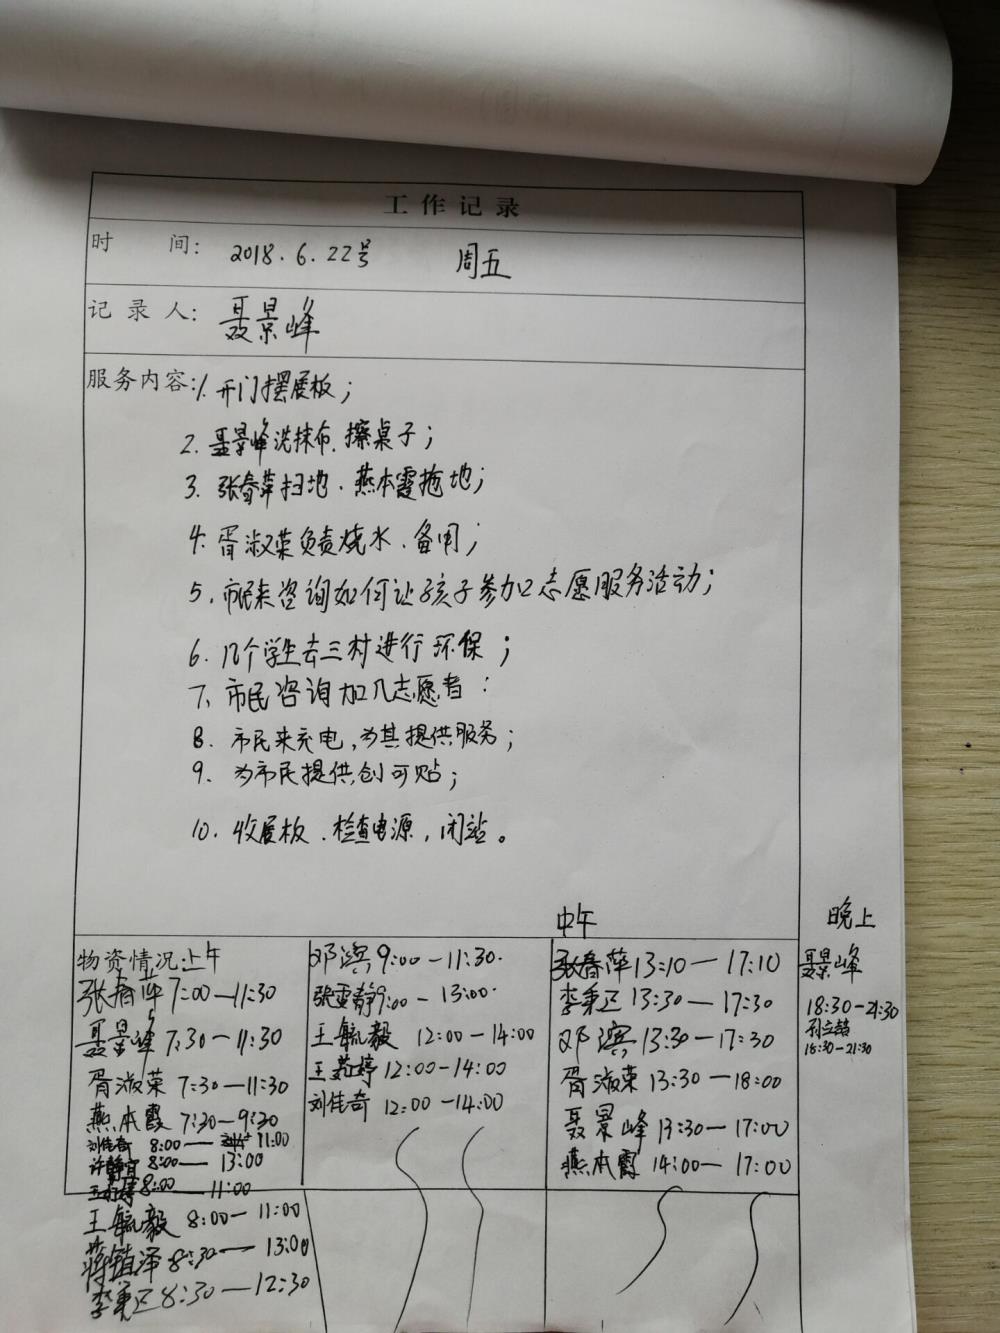 工作记录
时 间: 2018.6.22号 周五
记录人: 聂景峰
服务内容: 1. 开门摆展板;
2. 聂景峰洗抹布、擦桌子;
3. 张春萍扫地、燕本霞拖地;
4. 胥淑荣负责烧水、备用;
5. 市民来咨询如何让孩子参加志愿服务活动;
6. 几个学生去三村进行环保;
7. 市民咨询加入志愿者:
8. 市民来充电,为其提供服务;
9. 为市民提供创可贴;
10. 收展板、检查电源,闭站。
物资情况:上午
张春萍 7:00—11:30
聂景峰 7:30—11:30
胥淑荣 7:30—11:30
燕本霞 7:30—9:30
刘佳奇 8:00—11:00
许静宜 8:00—13:00
8:00—11:00
王毓毅 8:00—11:00
蒋镇泽 8:30—13:00
李秉正 8:30—12:30
邓滨 9:00—11:30.
张雪静 9:00—13:00.
王毓毅 12:00—14:00
王 婷 12:00—14:00
刘佳奇 12:00—14:00
中午
张春萍 13:10—17:10
李秉正 13:30—17:30
邓滨 13:30—17:30
胥淑荣 13:30—18:00
聂景峰 13:30—17:00
燕本霞 14:00—17:00
晚上
聂景峰
18:30—21:30
18:30—21:30